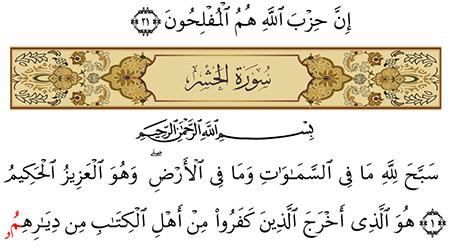 إِنَّ حِزْبَ اللَّهِ هُمُ الْمُفْلِحُونَ ﴿٢١﴾
سُورَةُ الحَشْرِ
بِسْمِ اللَّهِ الرَّحْمَٰنِ الرَّحِيمِ
سَبَّحَ لِلَّهِ مَا فِى السَّمَـٰوَٰتِ وَمَا فِى الْأَرْضِ ۖ وَهُوَ الْعَزِيزُ الْحَكِيمُ
﴿١﴾ هُوَ الَّذِى أَخْرَجَ الَّذِينَ كَفَرُوا مِنْ أَهْلِ الْكِتَـٰبِ مِن دِيَـٰرِهِمُۥ